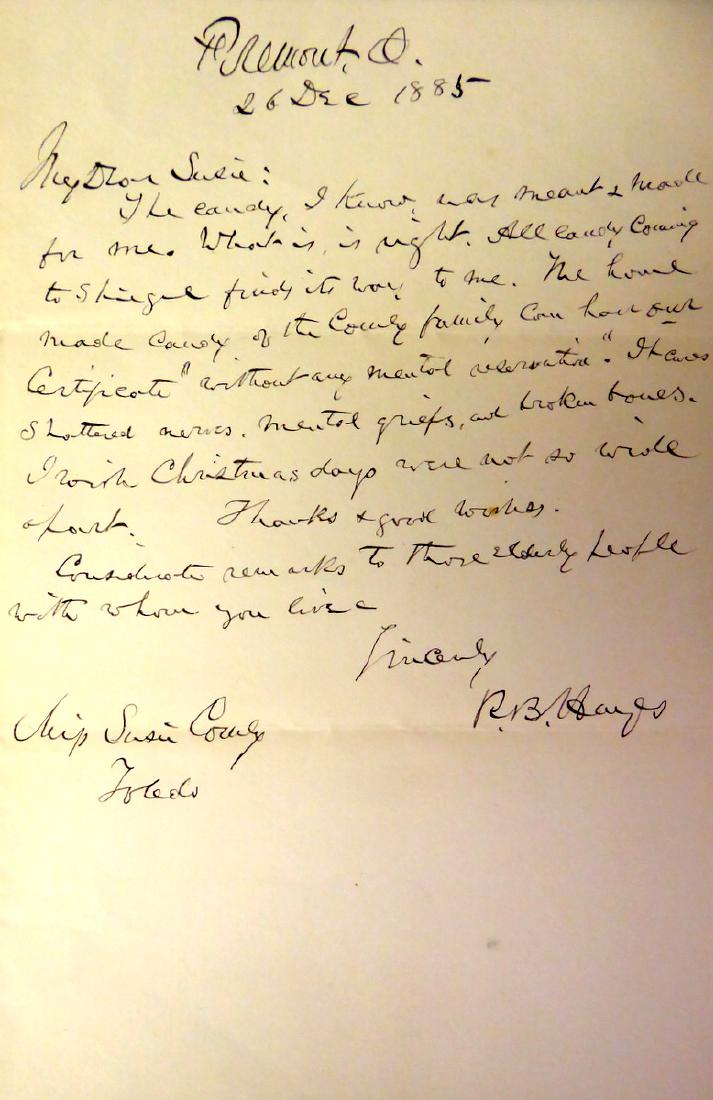 Fremont, O.
26 Dec 1885
My Dear Susie:
The candy, I know, was meant & made
for me. What is, is right. All candy coming
to Spiegel finds its way to me. The home
made candy of the Comly family can have our
Certificate "without any mental reservation". It cures
shattered nerves, mental griefs, and broken bones.
I wish Christmas days were not so wide
apart. Thanks & good wishes.
Considerate remarks to those elderly people
with whom you live
Sincerely
R. B. Hayes
Miss Susie Comly
Toledo